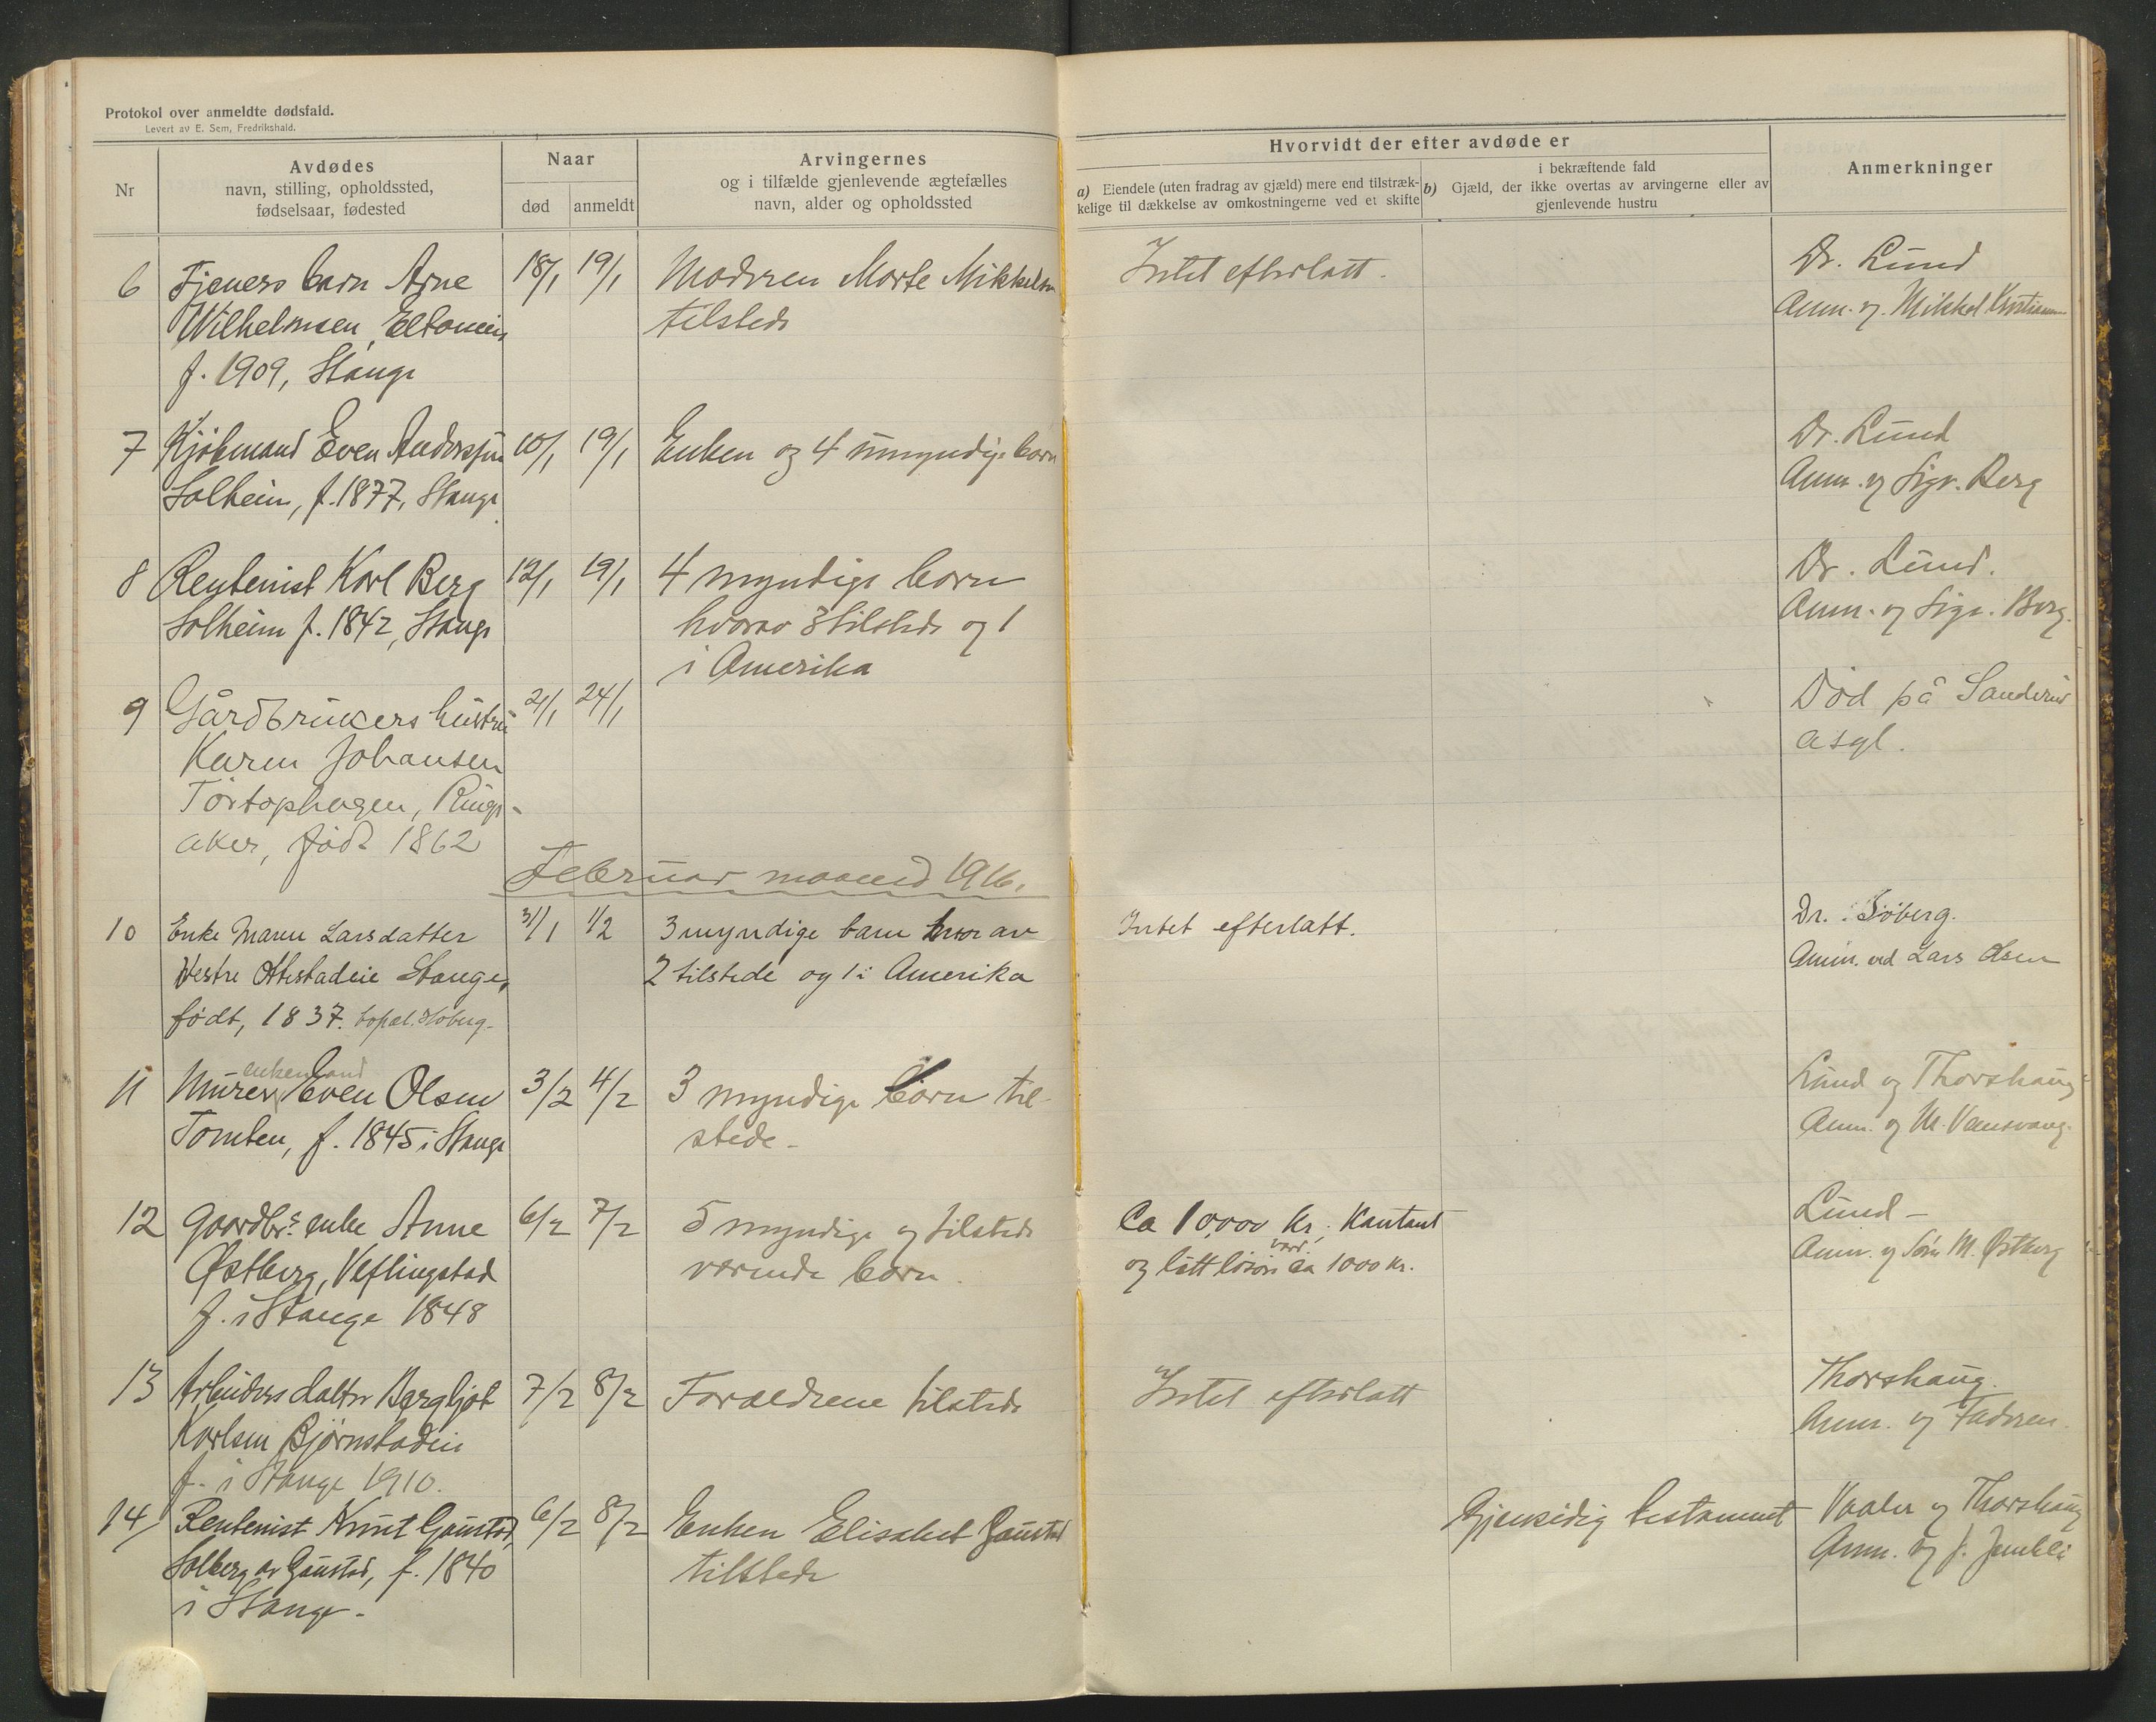 Protokol over anmeldte dødsfald.
Levert av E. Sem, Fredrikshald.
Nr
Avdødes
navn, stilling, opholdssted,
fødselsaar, fødested
Naar
død
anmeldt
Arvingernes
og i tilfælde gjenlevende ægtefælles
navn, alder og opholdssted
Hvorvidt der efter avdøde er
a) Eiendele (uten fradrag av gjæld) mere end tilstræk-
kelige til dækkelse av omkostningerne ved et skifte
i bekræftende fald
b) Gjæld, der ikke overtas av arvingerne eller av
gjenlevende hustru
Anmerkninger
6
Tjeners barn Arne
Wilhelmsen
f. 1909, Stange
18/1
19/1
Moderen Marte Mikkelsen
tilstede
Intet efterlatt.
Dr. Lund
Anm. og. Mikkel
7
Kjøbmand Even Anderssen
Solheim, f. 1877, Stange
10/1
19/1
Enken og 4 umyndige barn
Dr. Lund
Anm. og Sigv. Berg
8
Rentenist Karl Berg
Solheim f. 1842, Stange
12/1
19/1
4 myndige barn
hvorav 3 tilstede og 1
i Amerika
Dr. Lund.
Anm. og Sigv. Berg.
9
Gårdbrukers hustru
Karen Johansen
Tørtophagen, Rings-
aker, født 1862
21/1
24/1
Død på Sanderud
asyl.
Februar maaned 1916.
10
Enke Maren Larsdatter
Vestre Ottestadeie Stange,
født, 1837.
31/1
1/2
3 myndige barn hvor av
2 tilstede og 1 i Amerika
Intet efterlatt.
Dr. Søberg.
Anm. ved Lars Olsen
11
enkemand
Murer Even Olsen
Tomten, f. 1845 i Stange
3/2
4/2
3 myndige barn til-
stede -
Lund og Thorshaug
Anm. og M.
12
Gaardbr.s enke Anne
Østberg, Veflingstad
f. i Stange 1848
6/2
7/2
5 myndige og tilstede
værende barn.
Ca 10,000 kr. Kontant
værd.
og litt løsøre ca 1000 kr.
Lund -
Anm. og Søn M. Østberg
13
Arbeiders datter Bergljot
Karlsen Bjørnstadeie
f. i Stange 1910.
7/2
8/2
Forældrene tilstede
Intet efterlatt
Thorshaug.
Anm. og Faderen.
14
Rentenist Knut Gaustad,
Solberg av Gaustad, f. 1840
i Stange.
6/2
8/2
Enken Elisabet Gaustad
tilstede
Gjensidig testament
Vaaler og Thorshaug
Anm. og J.